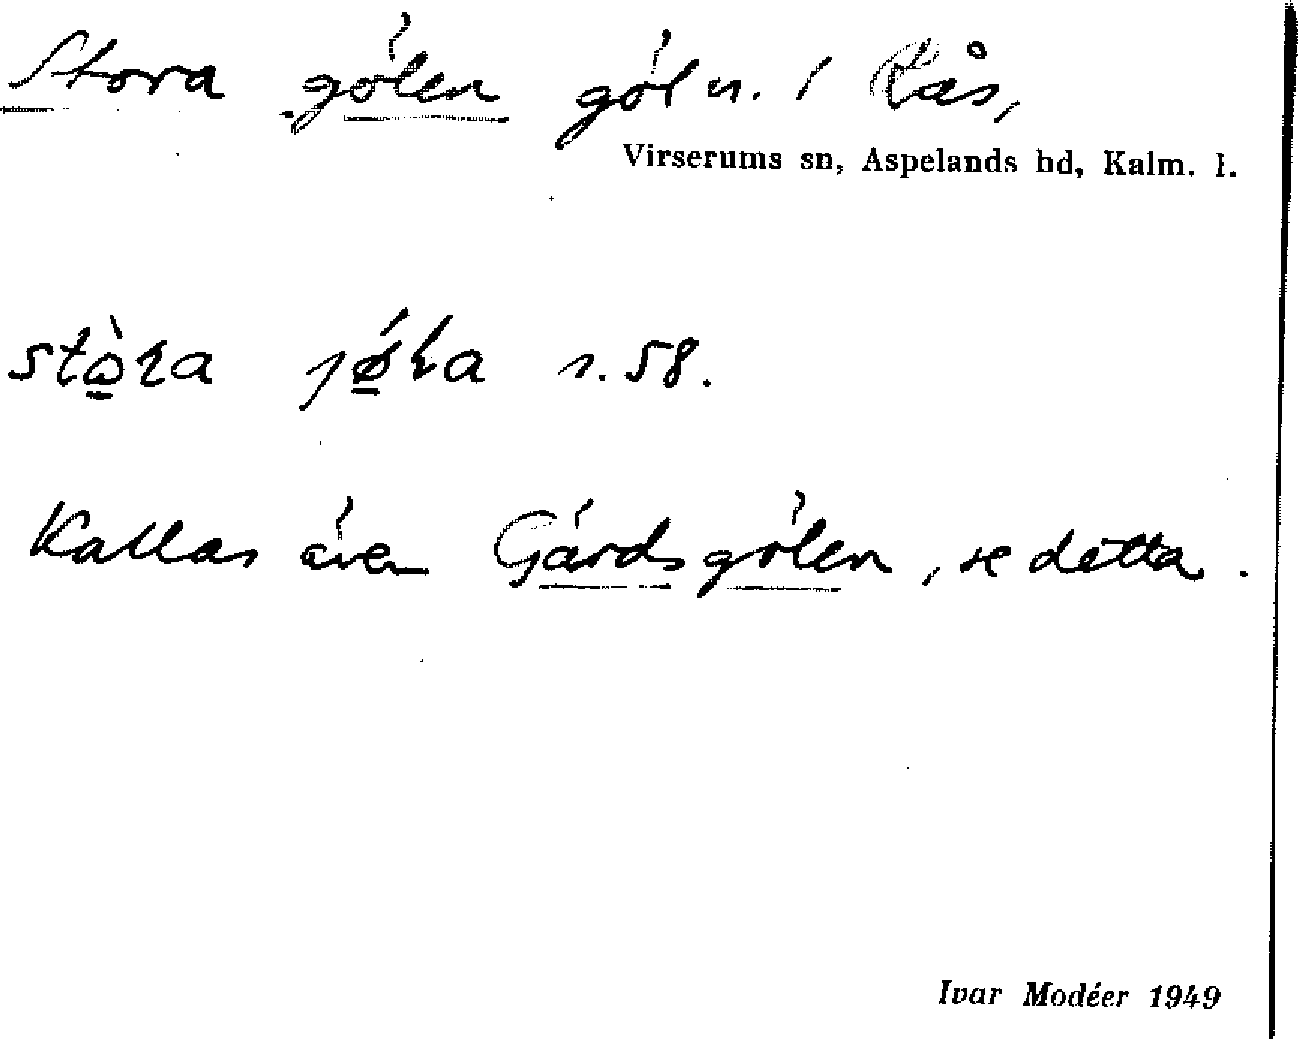 Stora gölen göl n. i Rås,
Virserums sn, Aspelands hd, Kalm. l.
stò̱ra jǿ̱la s. 58.
Kallas även Gårdsgölen, se detta.
Ivar Modéer 1949